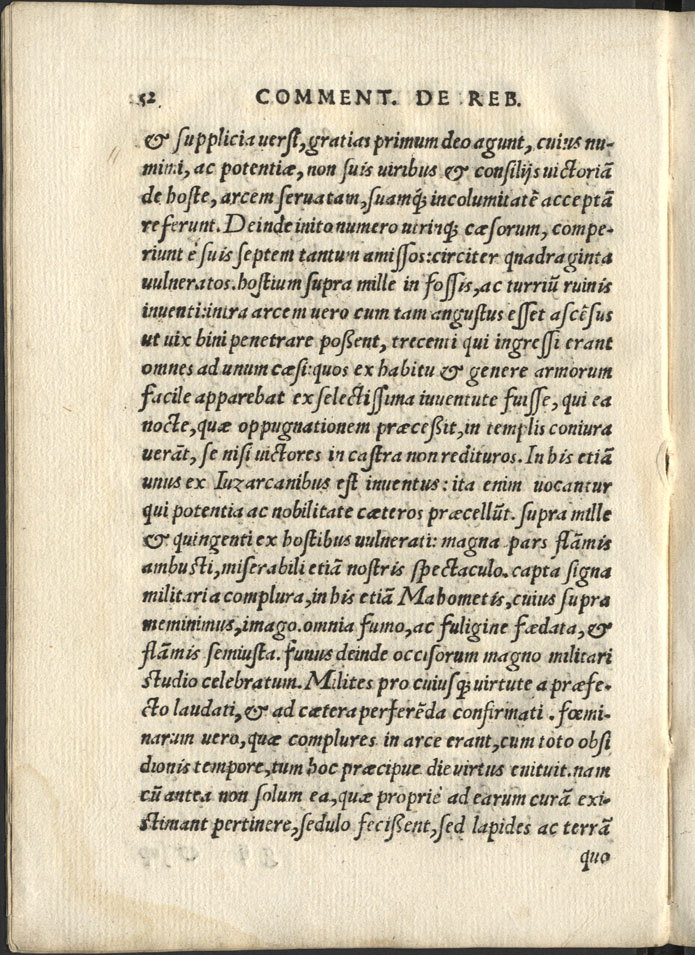 52 COMMENT. DE REB.
& supplicia uersi, gratias primum deo agunt, cuius nu-
mini, ac potentiæ, non suis uiribus & consilijs uictoriā
de hoste, arcem seruatam, suamq; incolumitatē acceptā
referunt. Deinde inito numero utrinq; cæsorum, compe-
riunt è suis septem tantum amissos: circiter quadraginta
uulneratos. hostium supra mille in fossis, ac turriū ruinis
inuenti: intra arcem uero cum tam angustus esset ascēsus
ut uix bini penetrare poßent, trecenti qui ingressi erant
omnes ad unum cæsi: quos ex habitu & genere armorum
facile apparebat ex selectissima iuuentute fuisse, qui ea
nocte, quæ oppugnationem præceßit, in templis coniura
uerāt, se nisi uictores in castra non redituros. In his etiā
unus ex Iuzarcanibus est inuentus: ita enim uocantur
qui potentia ac nobilitate cæteros præcellūt. supra mille
& quingenti ex hostibus uulnerati: magna pars flāmis
ambusti, miserabili etiā nostris spectaculo. capta signa
militaria complura, in his etiā Mahometis, cuius supra
meminimus, imago. omnia fumo, ac fuligine fædata, &
flāmis semiusta. funus deinde occisorum magno militari
studio celebratum. Milites pro cuiusq; uirtute a præfe-
cto laudati, & ad cætera perferēda confirmati. fœmi-
narum uero, quæ complures in arce erant, cum toto obsi
dionis tempore, tum hoc præcipue die uirtus enituit. nam
cū antea non solum ea, quæ proprie ad earum curā exi-
stimant pertinere, sedulo fecißent, sed lapides ac terrā
quo